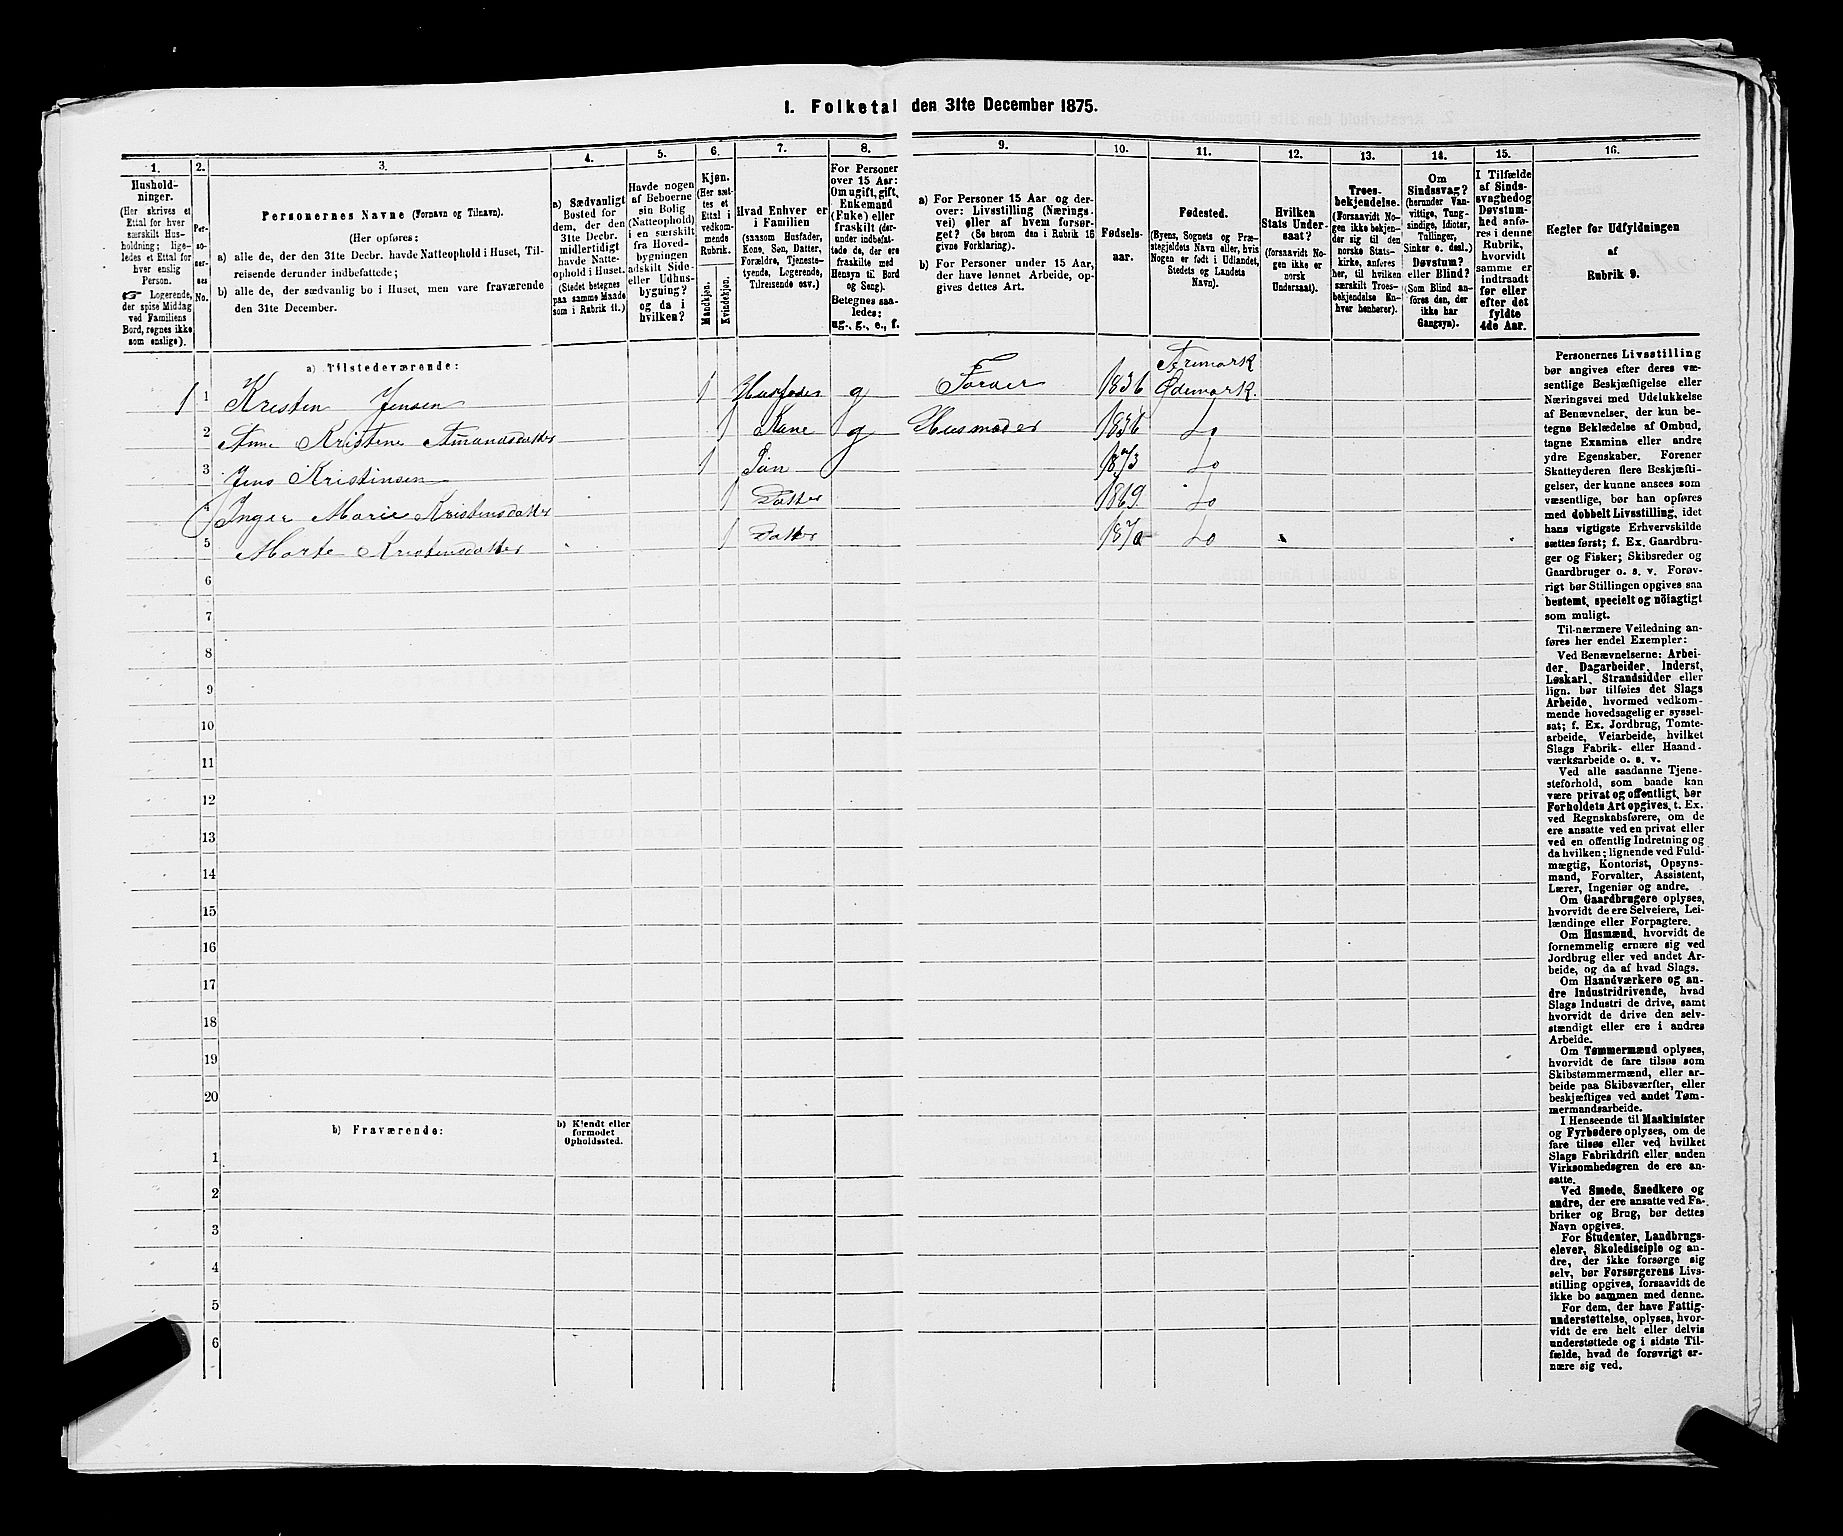 1. Folketal den 31te December 1875.
1.
Hushold-
ninger.
(Her skrives et
Ettal for hver
særskilt Hus-
holdning; lige-
ledes et Ettal for
hver enslig
Person.
☞ Logerende,
der spise Middag
ved Familiens
Bord, regnes ikke
som enslige).
2.
Per-
so-
ner-
nes
No.
3.
Personernes Navne (Fornavn og Tilnavn).
(Her opføres:
a) alle de, der den 31te Decbr. havde Natteophold i Huset, Til-
reisende derunder indbefattede;
b) alle de, der sædvanlig bo i Huset, men vare fraværende
den 31te December.
4.
a) Sædvanligt
Bosted for
dem, der den
31te Decbr.
midlertidigt
havde Natte-
ophold i Huset.
(Stedet betegnes
paa samme Maade
som i Rubrik 11.)
5.
Havde nogen
af Beboerne
sin Bolig
(Natteophold)
i en særskilt
fra Hoved-
bygningen
adskilt Side-
eller Udhus-
bygning?
og da i
hvilken?
6.
Kjøn.
(Her sæt-
tes et
Ettal i
vedkom-
mende
Rubrik.
Mandkjøn.
Kvindekjøn.
7.
Hvad Enhver er
i Familien
(saasom Husfader,
Kone, Søn, Datter,
Forældre, Tjeneste-
tyende, Logerende,
Tilreisende osv.)
8.
For Personer
over 15 Aar:
Om ugift, gift,
Enkemand
(Enke) eller
fraskilt (der-
under indbefat-
tede de, der ere
fraskilte med
Hensyn til Bord
og Seng).
Betegnes saa-
ledes:
ug., g., e., f.
9.
a) For Personer 15 Aar og der-
over: Livsstilling (Nærings-
vei) eller af hvem forsør-
get? (Se herom den i Rubrik 16
givne Forklaring).
b) For Personer under 15 Aar,
der have lønnet Arbeide, op-
gives dettes Art.
10.
Fødsels-
aar.
11.
Fødested.
(Byens, Sognets og Præ-
stegjeldets Navn eller, hvis
Nogen er født i Udlandet,
Stedets og Landets
Navn).
12.
Hvilken
Stats Under-
saat?
(forsaavidt No-
gen ikke er
norsk
Undersaat).
13.
Troes-
bekjendelse.
(Forsaavidt No-
gen ikke bekjen-
der sig til den
norske Stats-
kirke, anføres
her, til hvilken
særskilt Troes-
bekjendelse En-
hver henhører).
14.
Om
Sindssvag?
(herunder Van-
vittige, Tung-
sindige, Idioter,
Tullinger,
Sinker o. desl.)
Døvstum?
eller Blind?
(Som Blind an-
føres den, der
ikke har
Gangsyn).
15.
I Tilfælde
af Sinds-
svaghed og
Døvstum-
hed anfø-
res i denne
Rubrik,
hvorvidt
samme er
indtraadt
før eller
efter det
fyldte
4de Aar.
16.
Regler for Udfyldningen
af
Rubrik 9.
a) Tilstedeværende:
1 1 Kristen Jensen 1 Husfader g 1836 Aremark Ødemark.
2 Anne Kristine Amandsdatter 1 Kone g Husmoder 1836 Do
3 Jens Kristinsen 1 Søn 1873 Do
4 Inger Marie Kristensdatter 1 Datter 1869 Do
5 Marte Kristensdatter 1 Datter Do
6
7
8
9
10
11
12
13
14
15
16
17
18
19
20
b) Fraværende:
b) Kjendt eller
formodet
Opholdssted.
1
2
3
4
5
6
Personernes Livsstilling
bør angives efter deres væ-
sentlige Beskjæftigelse eller
Næringsvei med Udelukkelse
af Benævnelser, der kun be-
tegne Beklædelse af Ombud,
tagne Examina eller andre
ydre Egenskaber. Forener
Skatteyderen flere Beskjæfti-
gelser, der kunne ansees som
væsentlige, bør han opføres
med dobbelt Livsstilling, idet
hans vigtigste Erhvervskilde
sættes først; f. Ex. Gaardbru-
ger og Fisker; Skibsreder og
Gaardbruger o. s. v. Forøv-
rigt bør Stillingen opgives saa
bestemt, specielt og nöiagtigt
som muligt.
Til nærmere Veiledning an-
føres her endel Exempler:
Ved Benævnelserne: Arbei-
der, Dagarbeider, Inderst,
Løskarl, Strandsidder eller
lign. bør tilføies det Slags
Arbeide, hvormed vedkom-
mende hovedsagelig er syssel-
sat; f. Ex. Jordbrug, Tomte-
arbeide, Veiarbeide, hvilket
Slags Fabrik- eller Haand-
værksarbeide o. s. v.
Ved alle saadanne Tjene-
steforhold, som baade kan
være privat og offentligt, bør
Forholdets Art opgives, t. Ex.
ved Regnskabsførere, om de
ere ansatte ved en privat eller
ved en offentlig Indretning og
da hvilken; lignende ved Fuld-
mægtig, Kontorist, Opsyns-
mand, Forvalter, Assistent,
Lærer, Ingeniør og andre.
Om Gaardbrugere oplyses,
hvorvidt de ere Selveiere, Lei-
lændinge eller Forpagtere.
Om Husmænd, hvorvidt de
fornemmelig ernære sig ved
Jordbrug eller ved andet Ar-
beide, og da af hvad Slags.
Om Haandværkere og an-
dre Industridrivende, hvad
Slags Industri de drive, samt
hvorvidt de drive den selv-
stændigt eller ere i andres
Arbeide.
Om Tømmermænd oplyses,
hvorvidt de fare tilsøs som
Skibstømmermænd, eller ar-
beide paa Skibsværfter, eller
beskjæftiges ved andet Tøm-
mermandsarbeide.
I Henseende til Maskinister
og Fyrbødere oplyses, om de
fare tilsøs eller ved hvilket
Slags Fabrikdrift eller anden
Virksomhedsgren de ere an-
satte.
Ved Smede, Snedkere og
andre, der ere ansatte ved Fa-
briker og Brug, bør dettes
Navn opgives.
For Studenter, Landbrugs-
elever, Skoledisciple og an-
dre, der ikke forsørge sig
selv, bør Forsørgerens Livs-
stilling opgives, forsaavidt de
ikke bo sammen med denne.
For dem, der have Fattig-
understøttelse, oplyses, hvor-
vidt de ere helt eller delvis
understøttede og i sidste Til-
fælde, hvad de forøvrigt er-
nære sig ved.